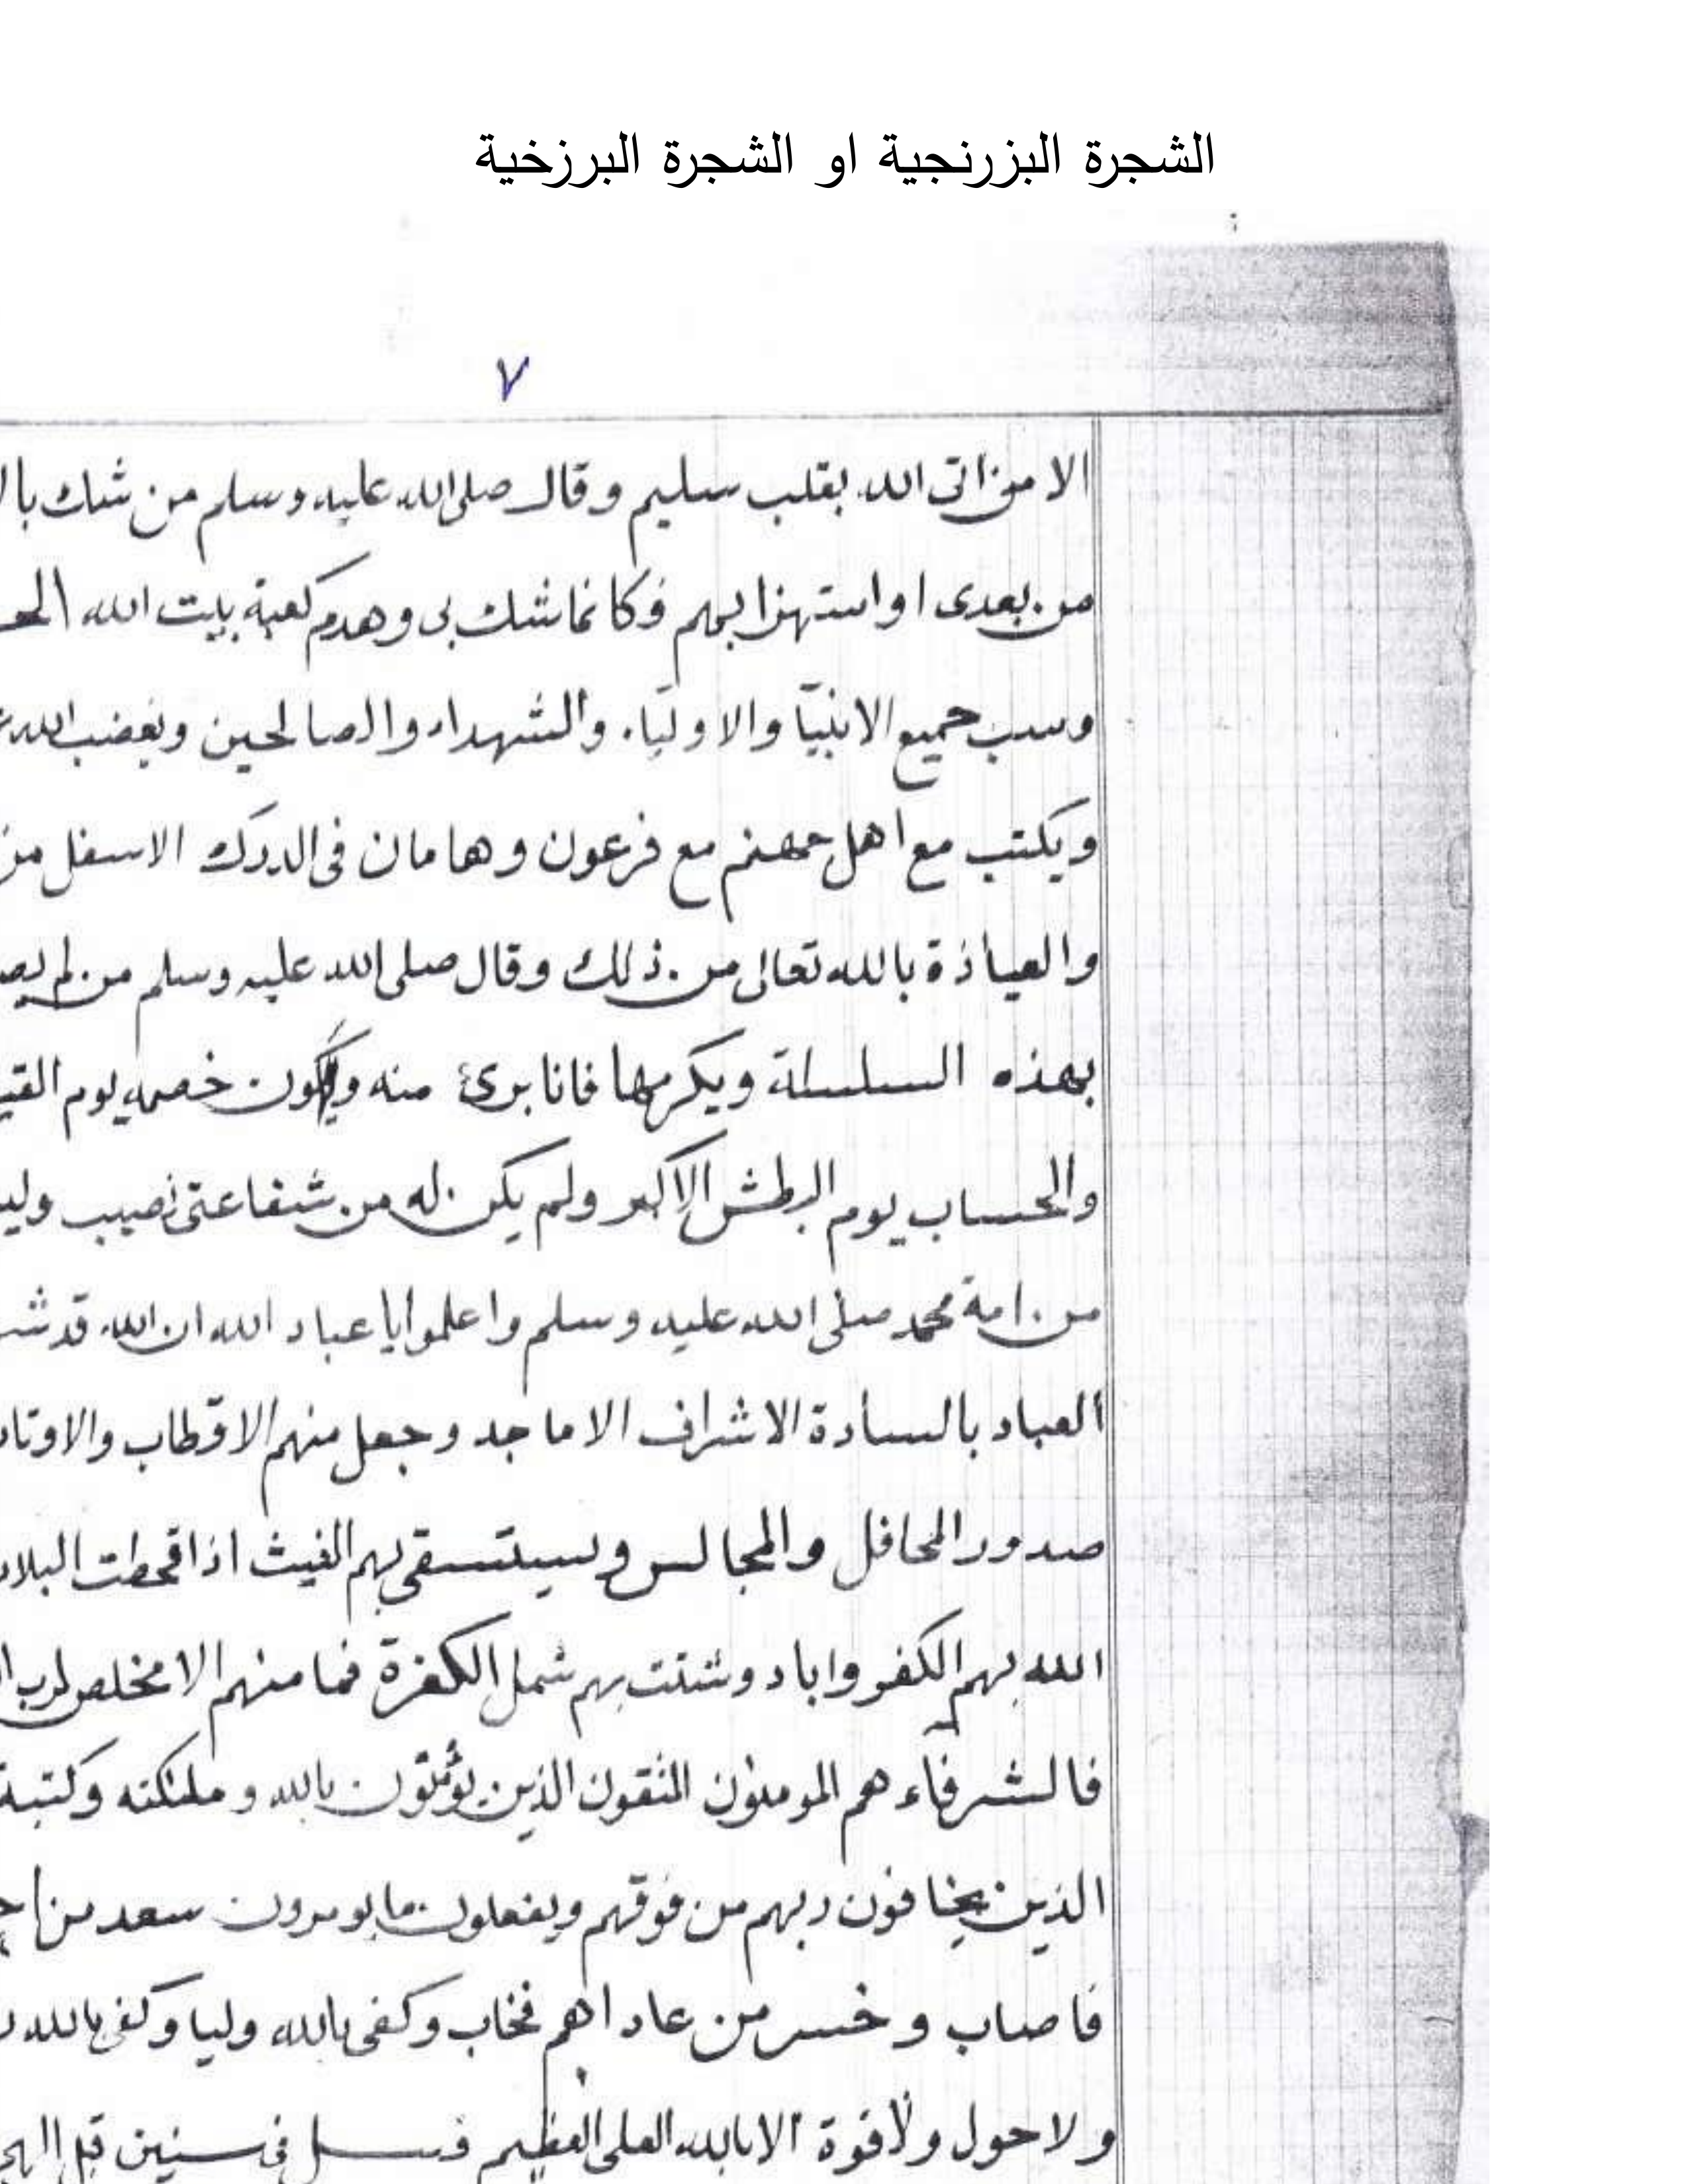 الشجرة البزرنجية او الشجرة البرزخية
٧
الا من اتى الله بقلب سليم وقال صلى الله عليه وسلم من شك بال
من بعدى او استهزا بهم فكانما شك بى وهدم كعبة بيت الله الحـ
وسب جميع الانبيا والاولياء والشهداء والصالحين ويغضب الله
ويكتب مع اهل جهنم مع فرعون وهامان فى الدرك الاسفل من
والعياذة بالله تعالى من ذلك وقال صلى الله عليه وسلم من لم يصـ
بهذه السلسلة ويكرمها فانا برئ منه خصمه يوم القيـ
والحساب يوم البطش الاكبر ولم يكن له من شفاعتى نصيب وليـ
من امة محمد صلى الله عليه وسلم واعلموا يا عباد الله ان الله قد شـ
العباد بالسادة الاشراف الاماجد وجعل منهم الاقطاب والاوتاد
صدور المحافل والمجالس ويستسقى بهم الغيث اذا قحطت البلاد
الله بهم الكفر واباد وشتت بهم شمل الكفرة فما منهم الا مخلص لرب ا
فالشرفاء هم المومنون المتقون الذين يؤمنون بالله وملئكته وكتبه
الذين يخافون ربهم من فوقهم ويفعلون ما يومرون سعد من احـ
فاصاب وخسر من عاداهم فخاب وكفى بالله وليا وكفى بالله
ولا حول ولا قوة الا بالله العلى العظيم فى سنين قبل الهجـ